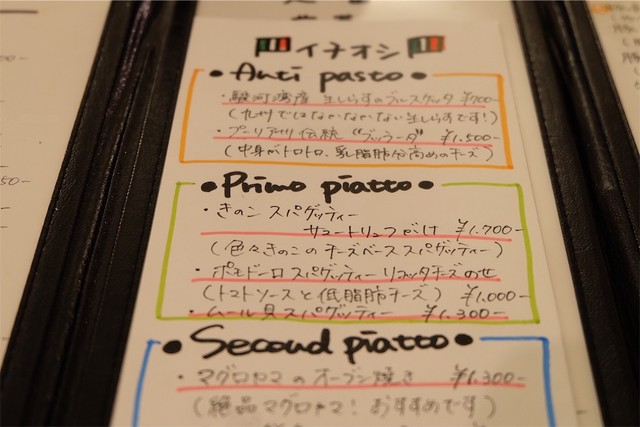 イチオシ
・Anti pasto・
・駿河湾産 生しらすのブルスケッタ ¥700-
(九州ではなかなかない生しらすです!)
・プーリアリ伝統 "ブッラータ" ¥1.500-
(中身がトロトロ、乳脂肪分高めのチーズ)
・Primo piatto・
・きのこ スパゲッティー
サマートリュフがけ ¥1.700-
(色々きのこのチーズベーススパゲッティー)
・ポモドーロ スパゲッティー リコッタチーズのせ
(トマトソースと低脂肪チーズ) ¥1.000-
・ムール貝スパゲッティー ¥1.300-
・Second piatto・
・マグロカマのオーブン焼き ¥1.300-
(絶品マグロカマ! おすすめです)